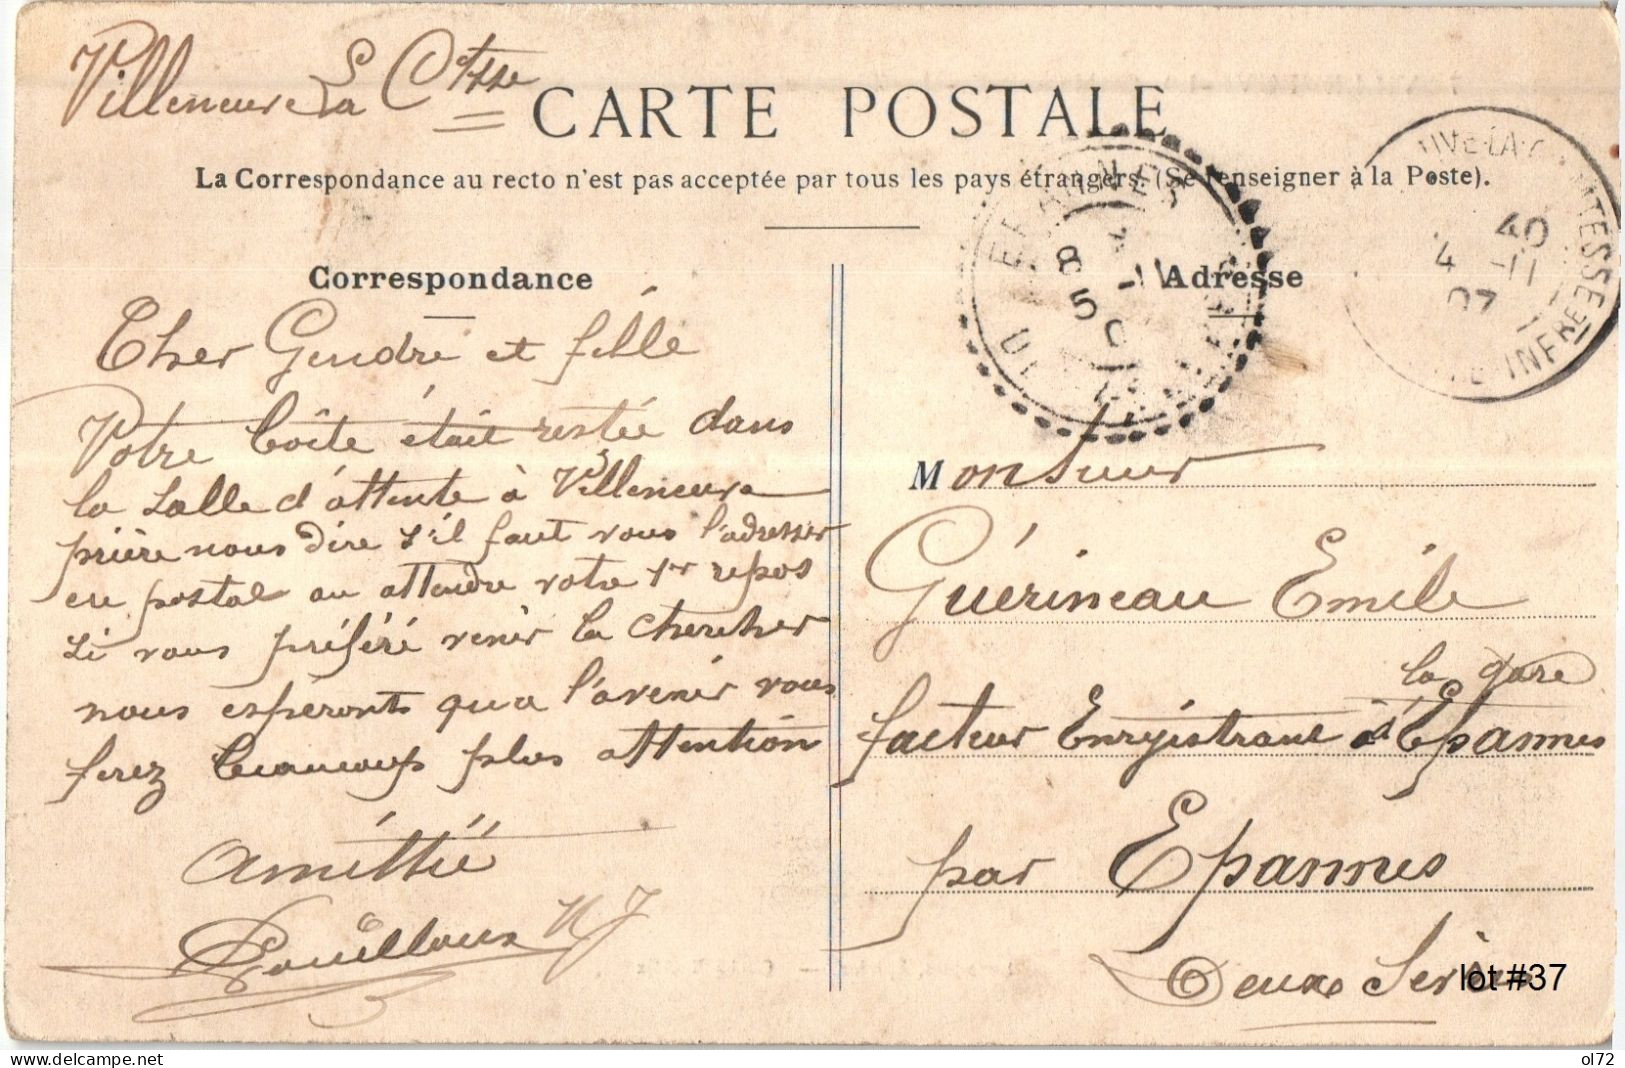 Villeneuve La Ctsse
CARTE POSTALE
La Correspondance au recto n'est pas acceptée par tous les pays étrangers. (Se renseigner à la Poste).
UVE-LA-C TESSE
INFRE
40
4 -11
07
8
5
Correspondance
Cher Gendre et fille
Votre boîte était restée dans
la Salle d'attente à Villeneuve
prière nous dire s'il faut vous l'adresser
en postal ou attendre votre 1er repos
si vous préféré venir la chercher
nous esperont qua l'avenir vous
ferez beaucoup plus attention
Amittié
Pouilloux
Adresse
Monsieur
Guérineau Emile
la gare
facteur Enrgistrant à d'Epannes
par Epannes
Deux Sèvres
lot #37
delcampe.net
ol72